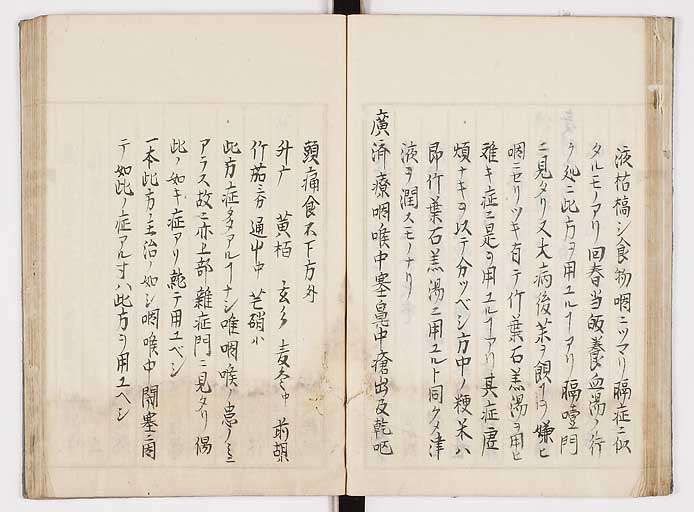 液枯槁シ食物咽ニツマリ膈症ニ似
タルモノアリ回春当皈養血湯ノ行
ク処ニ此方ヲ用ユルヿアリ膈噎門
ニ見タリ又大病後薬ヲ餌 嫌ヒ
咽ニセリツキ有テ竹葉石羔湯ヲ用ヒ
難キ症ニ是ヲ用ユルヿアリ其症虚
煩ナキヲ以テ分ツベシ方中ノ粳米ハ
即竹葉石羔湯ニ用ユルト同ク津
液ヲ潤スモノナリ
廣済療咽喉中塞鼻中瘡出及乾呕
頭痛食不下方
升广 黄栢 玄参 麦冬中 前胡
竹茹 通中 芒硝小
此方症多アルヿナシ唯咽喉ノ患ノミニ
アラス故ニ亦上部雑症門ニ見タリ偈
此ノ如キ症アリ 用ユベシ
一本此方ノ主治ノ如シ咽喉中閉塞
テ如此ノ症アル寸ハ此方ヲ用ユヘシ